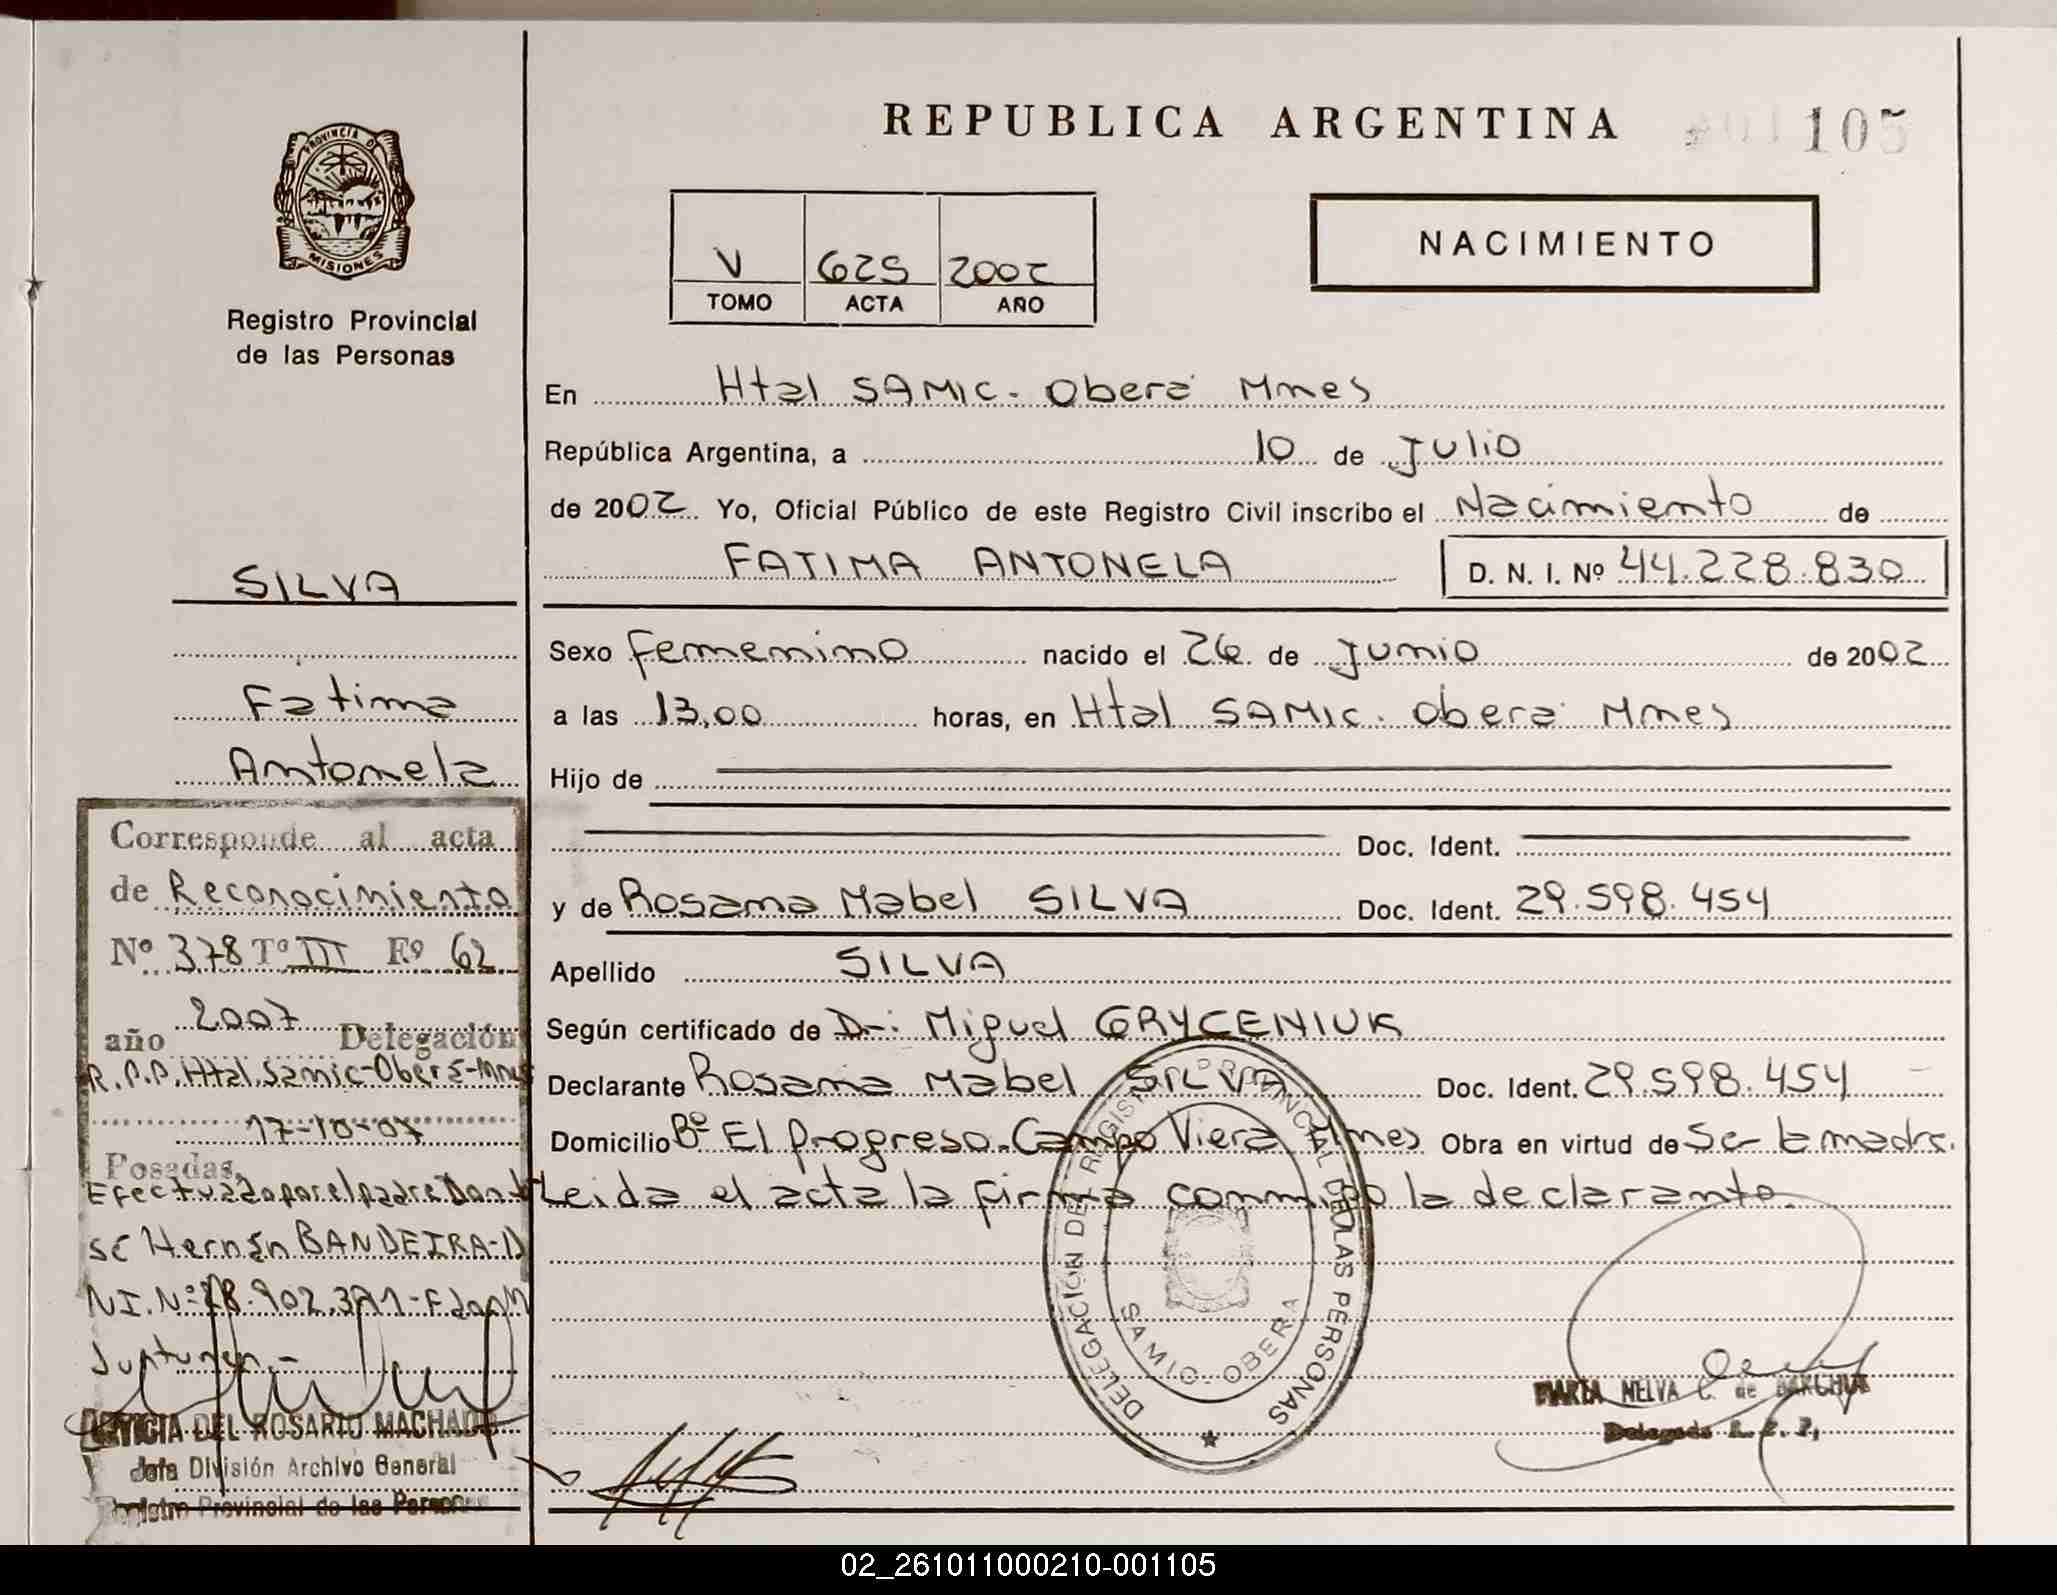 REPUBLICA ARGENTINA
105
PROVINCIA DE
MISIONES
Registro Provincial
de las Personas
V 625 2002
TOMO ACTA AÑO
NACIMIENTO
En Htal SAMIC. Oberá Mnes
República Argentina, a 10 de Julio
de 2002 Yo, Oficial Público de este Registro Civil inscribo el Nacimiento de
FATIMA ANTONELA D. N. I. Nº 44.228.830
Sexo femenino nacido el 26 de Junio de 2002
a las 13,00 horas, en Htal SAMIC. Oberá Mnes
Hijo de
Doc. Ident.
y de Rosana Mabel SILVA Doc. Ident. 29.598.454
Apellido SILVA
Según certificado de Dr: Miguel GRYCENIUK
Declarante Rosana Mabel SILVA Doc. Ident. 29.598.454
Domicilio Bº El Progreso. Campo Viera Mnes Obra en virtud de Ser la madre.
Leida el acta la firma conmigo la declarante.
SILVA
Fatima
Antonela
Corresponde al acta
de Reconocimiento
Nº 378 Tº III Fº 62
año 2007 Delegación
R.P.P. Htal. Samic-Oberá-Mnes
17-10-07
Posadas,
Efectuado por el padre Dan
sé Hernán BANDEIRA-D
NI.Nº 28.902.391-
LETICIA DEL ROSARIO MACHADO
Jefa División Archivo General
Registro Provincial de las Personas
DELEGACION DEL REGISTRO PROVINCIAL DE LAS PERSONAS
SAMIC - OBERA
MARIA NELVA C. de
Delegada R. P. P.
02_261011000210-001105